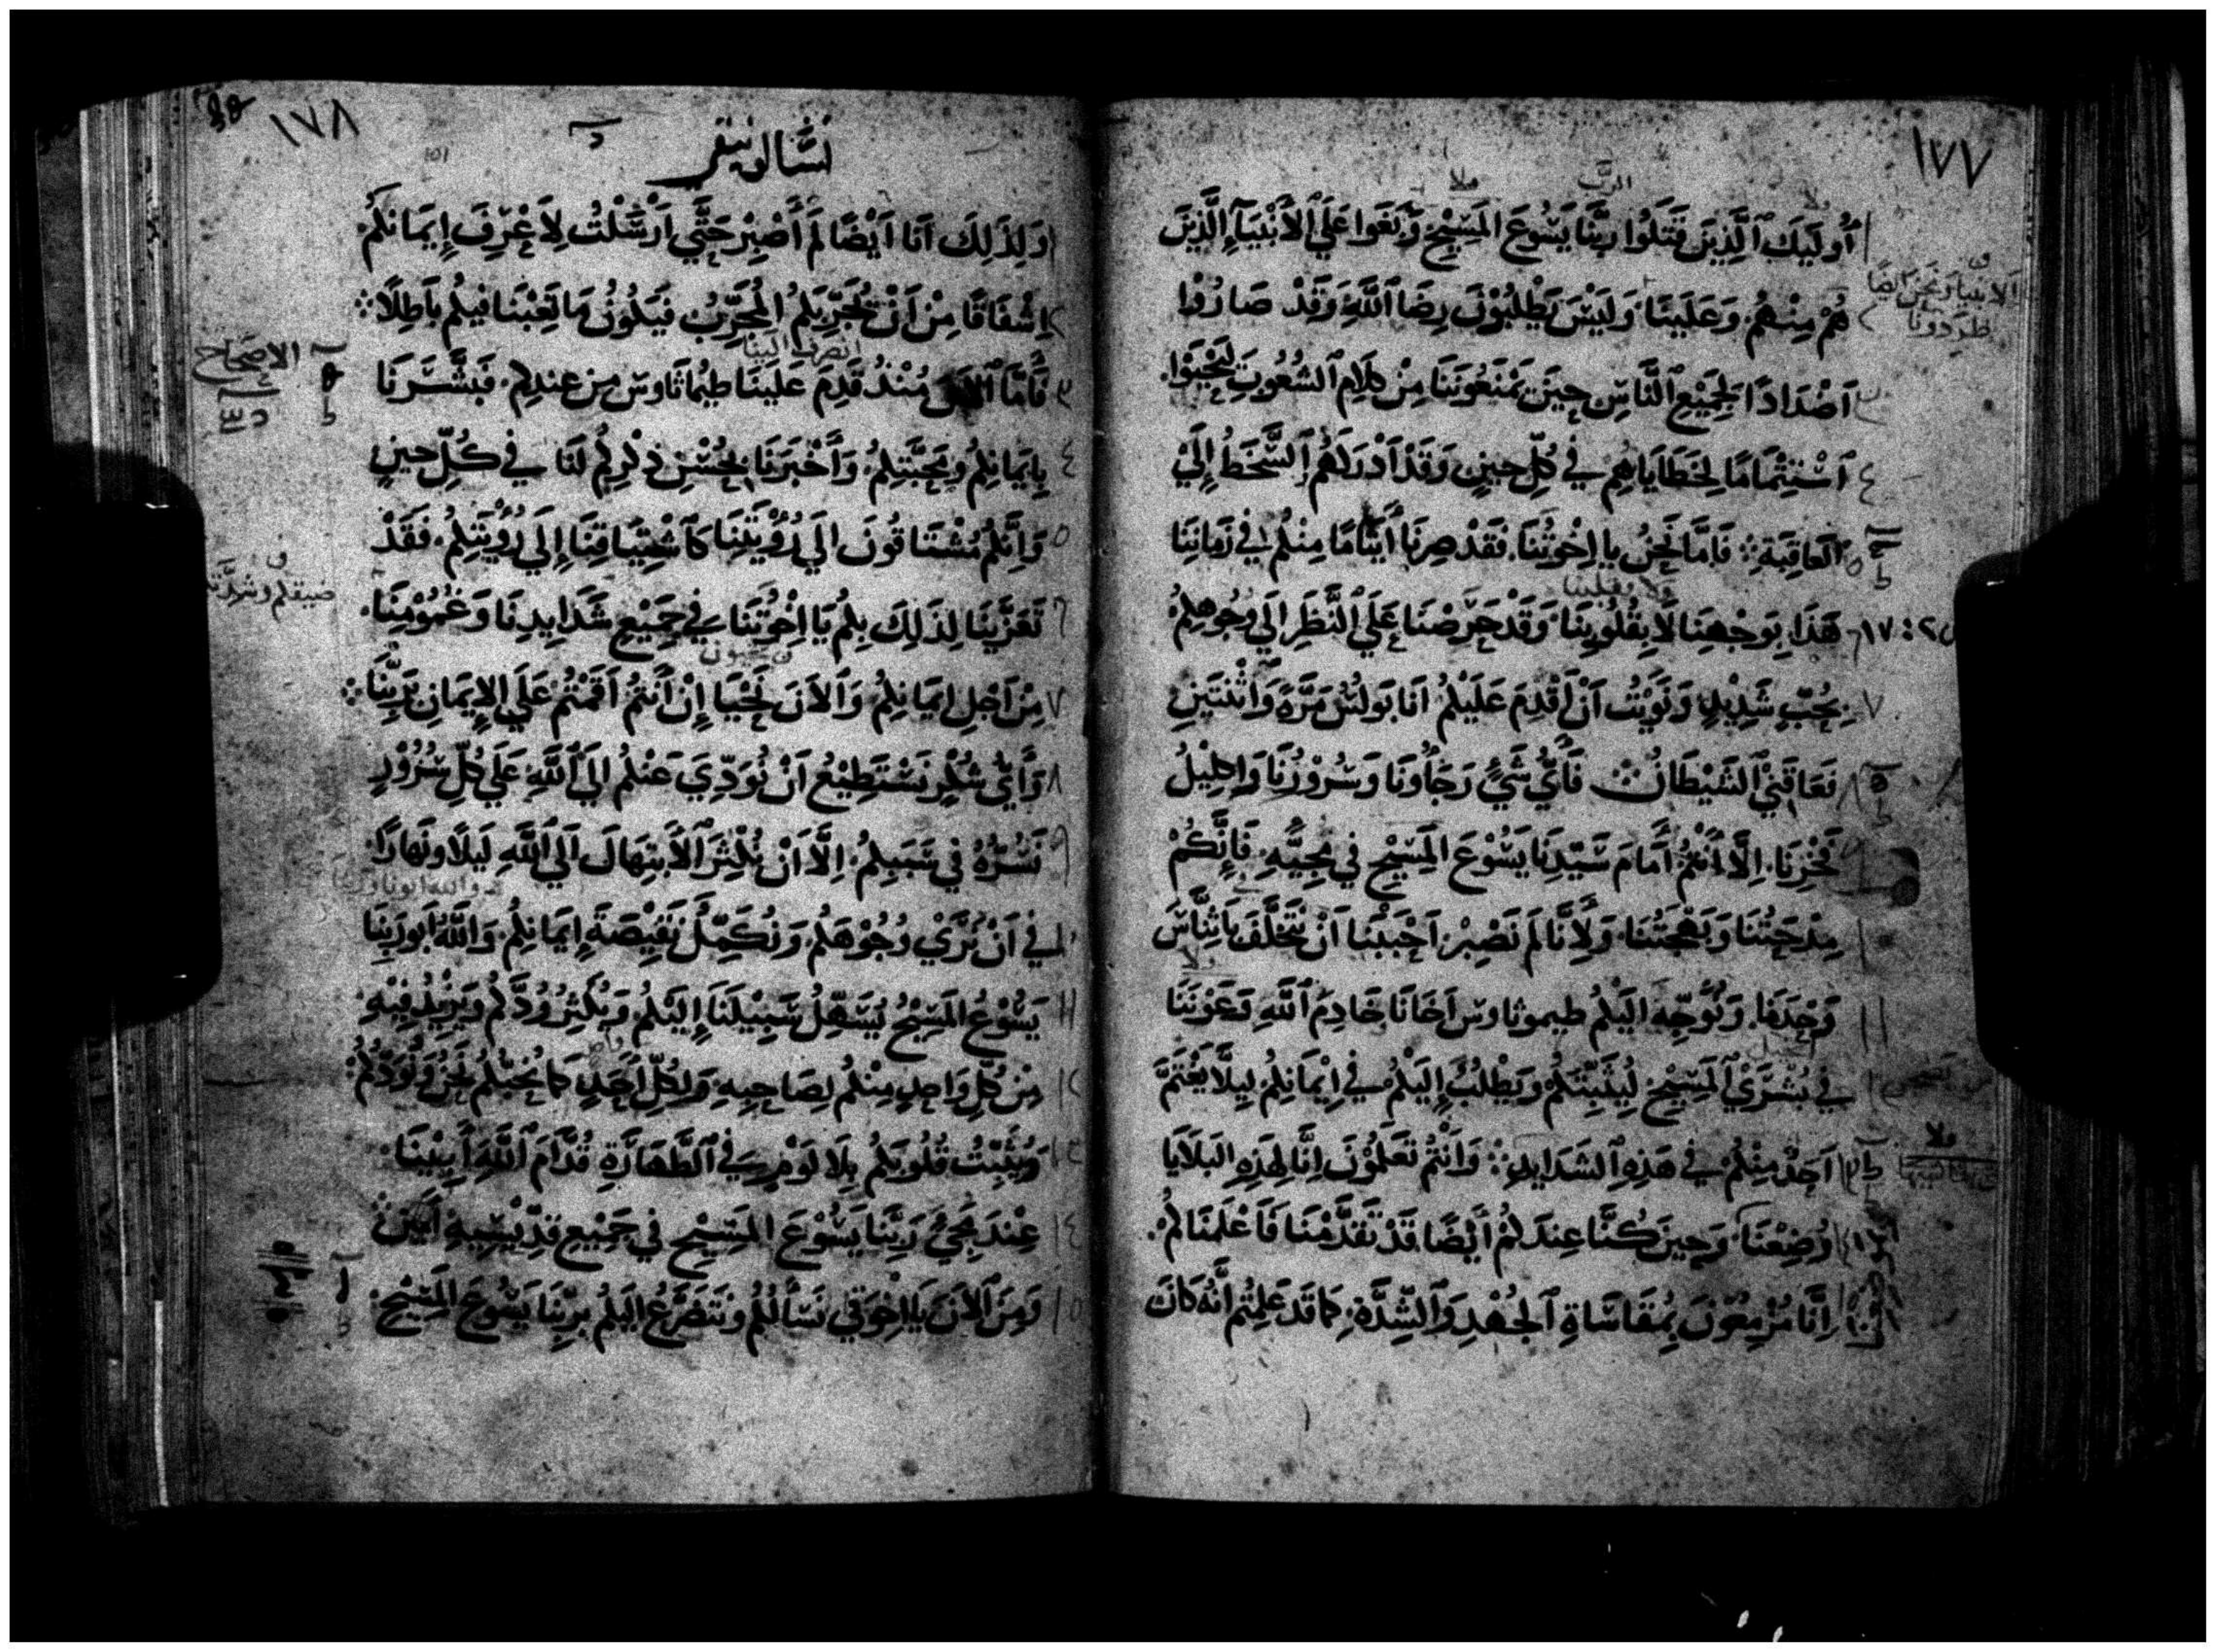 ١٧٧
الرب
١ أُولَيِكَ ٱلَّذِينَ قَتَلُوا رَبَّنَا يَسُوعَ المَسِيْحَ وَبَغَوا عَلَي ٱلأَنْبِيَآءِ الَّذِينَ
الانبيا ونحن ايضًا
طردونا
٢ هُمْ مِنْهُم. وَعَلَيْنَا وَلَيْسَ يَطْلُبُوْنَ رِضَا ٱللَّهِ وَقَدْ صَارُوْا
٣ اَضْدَادًا لِجَمِيْعِ ٱلنَّاسِ حِينَ يَمْنَعُونَنَا مِنْ كَلَامِ ٱلشُعُوبِ لِيَحْيَوْا.
٤ ٱسْتِتْمَامًا لِخَطَايَاهِمْ في كُلِّ حِينٍ وَقَدْ اَدْرَكَهُمُ ٱلسَّخَطُ إِلَيْ
٥ ٱلعَاقِبَةِ ܀ فَامَّا نَحْنُ يا اِخْوَتَنَا. فَقَدْ صِرْنَا أَيْتَامًا مِنْكُمْ في زَمَانِنَا
ولا بقلبنا
١٧:٢ ٦ هَذَا بِوَجْهِنَا لَا بِقُلُوْبِنَا وَقَدْ حَرَصْنَا عَلَي ٱلنَّظَرِ الَي وُجُوهِكُمْ
٧ بِحُبٍّ شَدِيْدٍ وَنَوَيْتُ اَنْ اَقْدِمَ عَلَيْكُمْ انَا بَولُسُ مَرَّةً وَاثْنَتَينِ
٨ فَعَاقَنِيْ ٱلشَيْطَانُ ܀ فَأَيُّ شَيْءٍ رَجَاؤُنَا وَسُرُوْرُنَا وَاكِلِيْلُ
٩ فَخْرِنَا. اِلَّا اَنْتُمْ أَمَامَ سَيِّدِنَا يَسُوْعَ المَسِيْحِ في مَجِيَّهِ. فَإِنَّكُمْ
١٠ مِدْحَتُنَا وَبَهْجَتُنَا. وَلأَنَّا لَمْ نَصْبِرْ. اَحْبَبْنَا اَنْ نَتَخَلَّفَ بَاثِنَّاسَ
١١ وَحْدَنَا. وَنُوَجِّهَ الَيْكُمْ طيموثاوس اَخَانَا خَادِمَ ٱللَّهِ وَعَوْنَنَا
١٢ في بُشْرَيْ ٱلمَسِيْحِ لِيُثَبِّتَكُمْ وَيَطْلُبُ إِلَيْكُمْ فِي إِيْمَانِكُمْ لِيَلَّا يَغْتَمَّ
١٣ اَحَدٌ مِنْكُمْ فِي هَذِهِ ٱلشَدَايِدِ ܀ وَأَنْتُمْ تَعْلَمُوْنَ اِنَّا لِهَذِهِ البَلَايَا
١٤ وُضِعْنَا وَحِينَ كُنَّا عِنْدَكُمْ أَيْضًا قَدْ تَقَدَّمْنَا فَاَعْلَمْنَاكُمْ.
١٥ اِنَّا مُزْمِعُوْنَ بِمُقَاسَاةِ ٱلجُهْدِ وَٱلشِّدَّةِ. كَمَا قَدْ عَلِمْتُم أَنَّهُ كَانَ
١٧٨
تسالونيقي
١ وَلِذَلِكَ اَنَا اَيْضًا لَمْ أَصْبِرْ حَتَّي اَرْسَلْتُ لِاَعْرِفَ إِيمَانَكُم.
٢ اِشْفَاقًا مِنْ اَنْ يُجَرِّبَكُمُ المُجَرِّبُ فَيَكُوْنُ مَا تَعِبْنَا فِيكُم بَاطِلًا ܀
انصرف الينا
الاصحاح
٣ فَأَمَّا ٱلاَنَ مُنْذُ قَدِمَ عَلَيْنَا طيمَاثَاوس مِن عِندِكُم. فَبَشَّرَنَا
٤ بِايمَانِكُمْ وَمَحَبَّتِكُمْ. وَأَخْبَرَنَا بِحُسْنِ ذِكْرِكُمْ لَنَا فِي كُلِّ حِينٍ
٥ وَاِنَّكُمْ مُشْتَاقُونَ الَي رُؤْيَتِنَا كَاَشْتِيَاقِنَا إِلَي رُؤْيَتِكُمْ. فَقَدْ
ضيقكم وشدتكم
٦ تَعَزَّيْنَا لِذَلِكَ بِكُمْ يَا اِخْوَتَنَا فِي جَمِيْعِ شَدَايِدِنَا وَغُمُوْمِنَا.
٧ مِنْ اَجْلِ ايمَانِكُمْ وَٱلاَنَ نَحْيَا إِنْ أَنْتُمْ اَقَمْتُمْ عَلَي الاِيمَانِ بِرَبِّنَا ܀
٨ وَأَيُّ شُكْرٍ نَسْتَطِيْعُ اَنْ نُوَدِّيَ عَنْكُم اليَ ٱللَّهِ عَلَي كُلِّ سُرُوْرٍ
٩ نَسُرُّهُ فِي سَبَبِكُمْ. اِلَّا اَنْ نُكْثِرَ ٱلاَبتِهَالَ الَي ٱللَّهِ لَيْلًا وَنَهَارًا.
والله ابونا وربنا
١٠ في اَنْ نَرَي وُجُوْهَكُم وَنُكَمِّلَ نَقِيْصَةَ إِيمَانِكُمْ. وَاللَّهُ اَبُو رَبِّنَا
١١ يَسُوْعُ المَسِيْحُ يُسَهِّلُ سَبِيْلَنَا إِلَيْكُمْ وَيُكْثِرُ وُدَّكُمْ وَيَزِيْدُ فِيْهِ.
١٢ مِنْ كُلِّ وَاحِدٍ مِنْكُمْ لِصَاحِبِهِ وَلِكُلِّ اَحَدٍ كَمَا نُحِبُّكُمْ نَحْنُ وَنَوَدُّكُمْ:
١٣ وَيُثَبِّتُ قُلُوبَكُمْ بِلَا لَوْمٍ فِي ٱلطَّهَارَةِ قُدَّامَ ٱللَّهِ أَبِيْنَا.
١٤ عِنْدَ مَجِيْ رَبِّنَا يَسُوْعَ المَسِيْحِ في جَمِيْعِ قِدِّيْسِيهِ. اَمِيْنَ ܀
١٥ وَمِنَ ٱلاَنَ يَا اِخْوَتِي نَسْأَلُكُمْ وَنَتَضَرَّعُ الَيْكُمْ بِرَبِّنَا يَسُوعَ المَسِيْحِ.